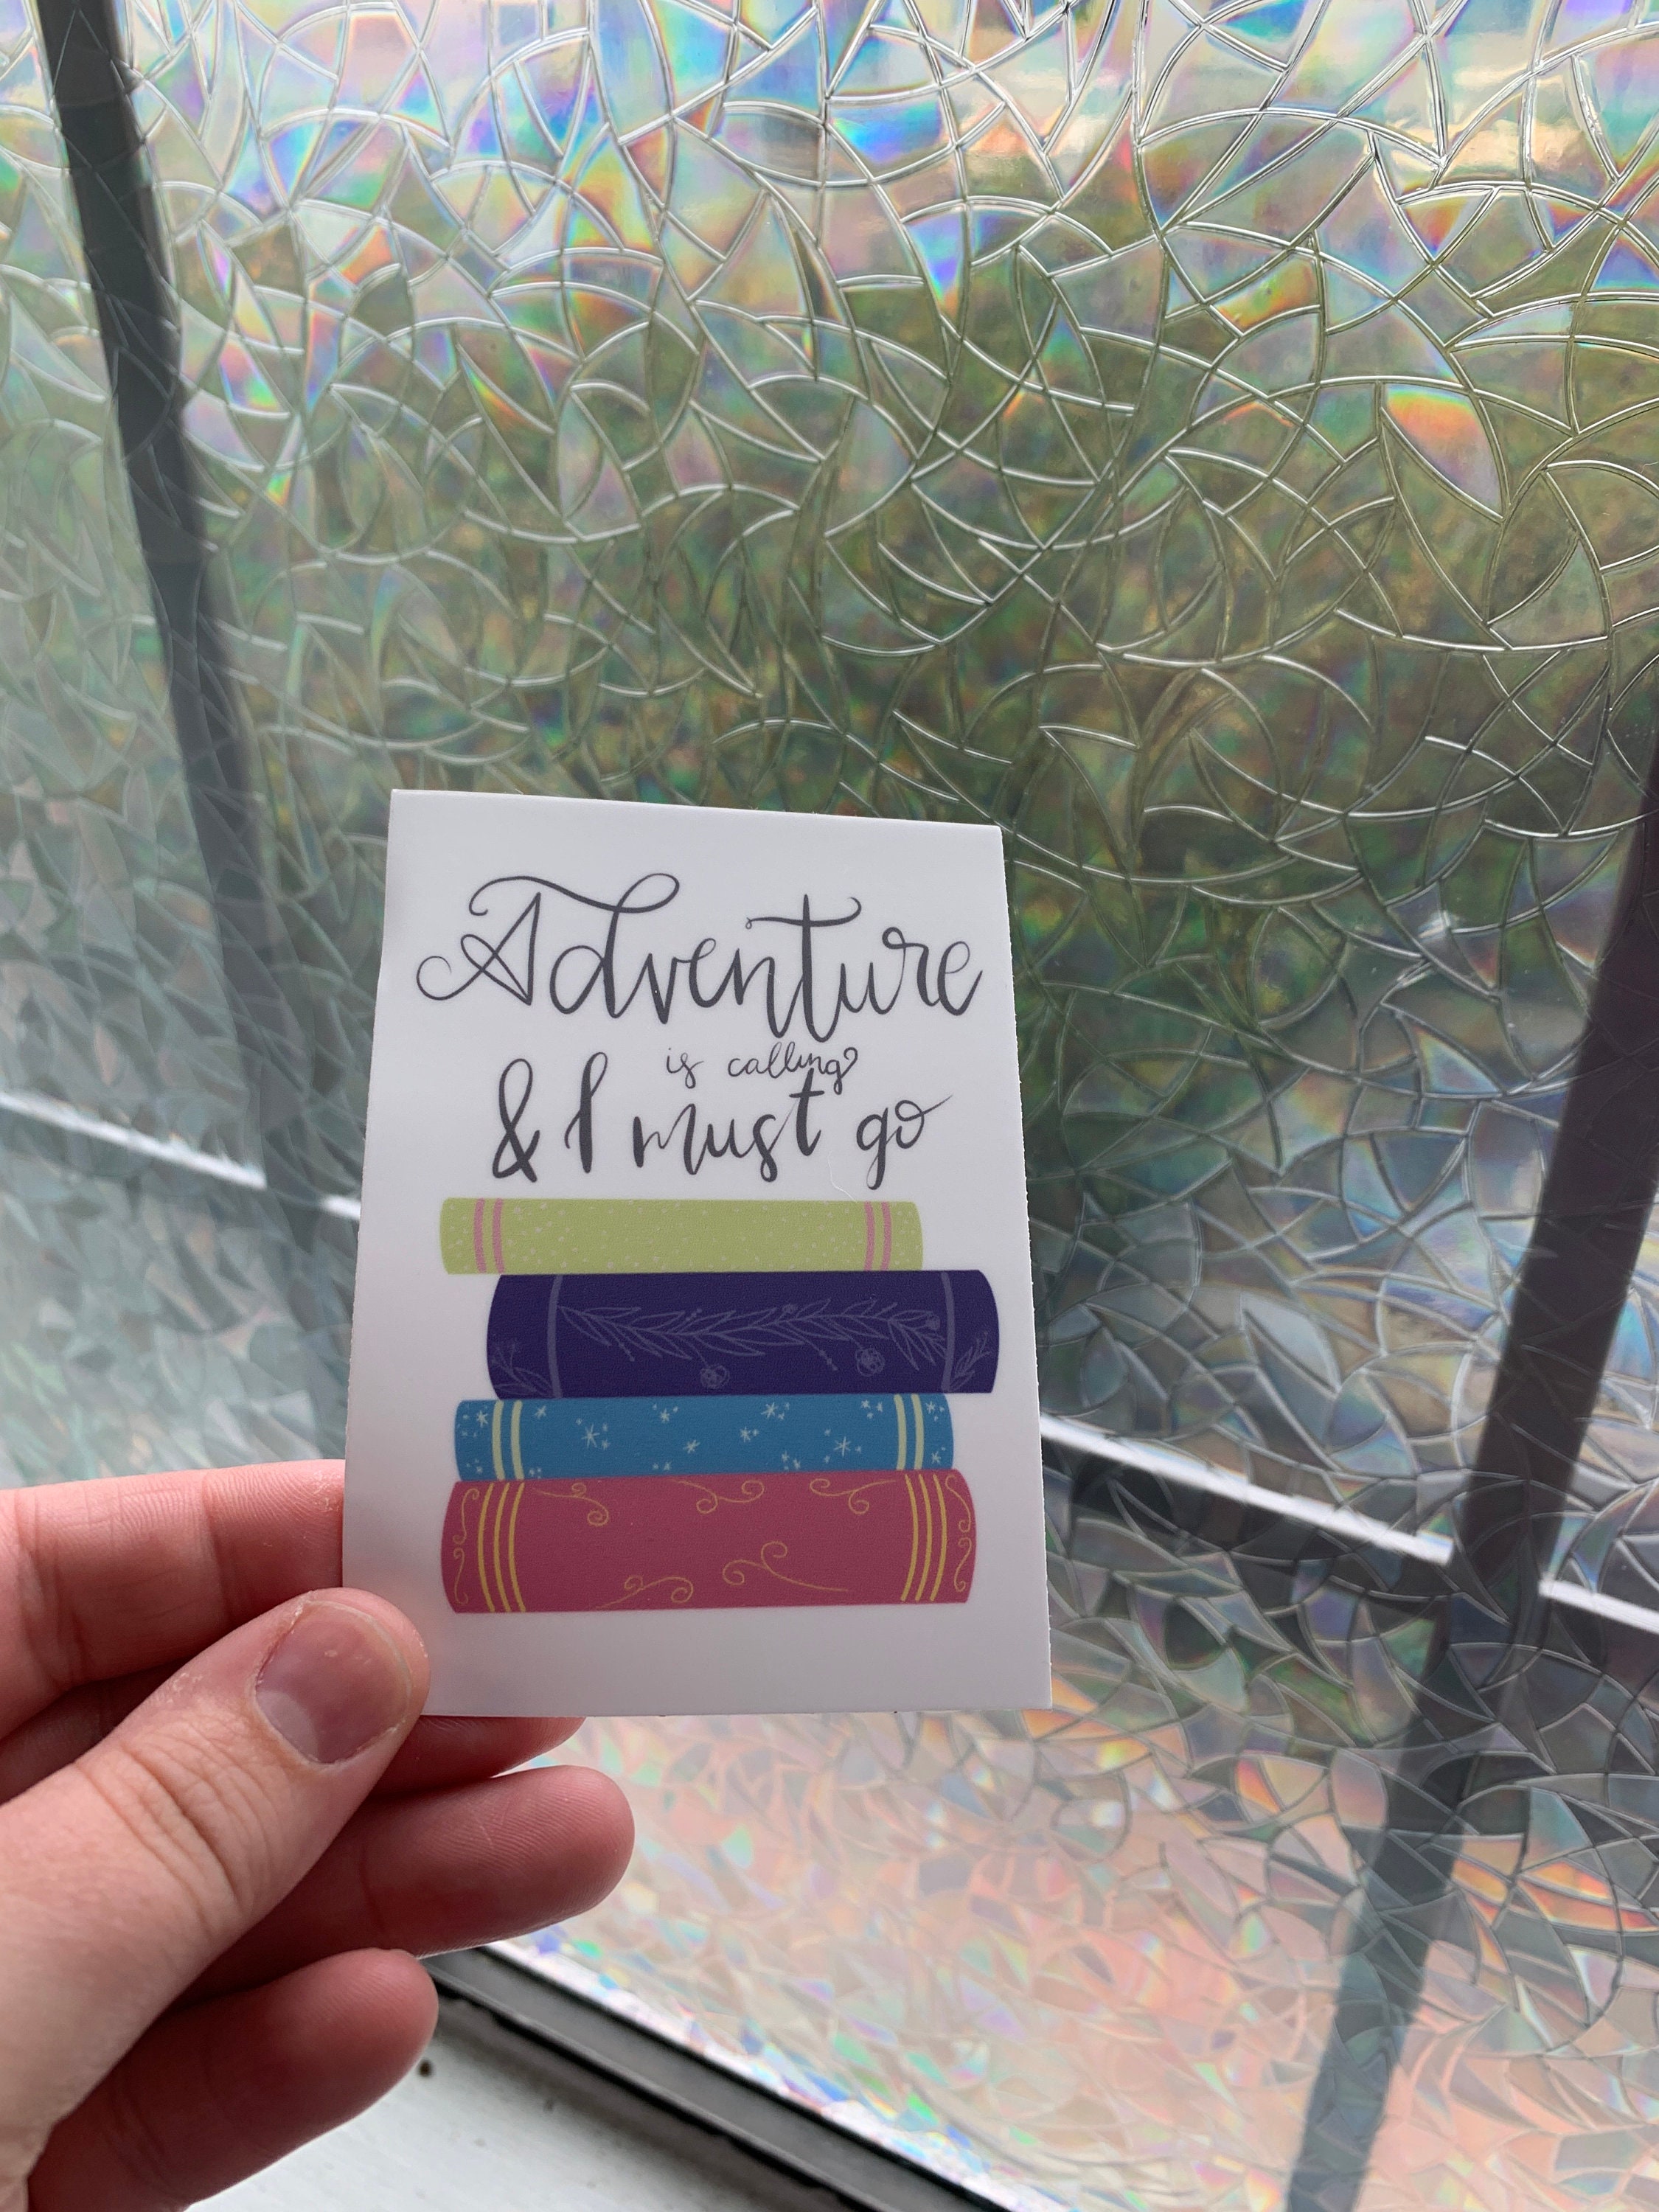 Adventure
is calling
& I must go